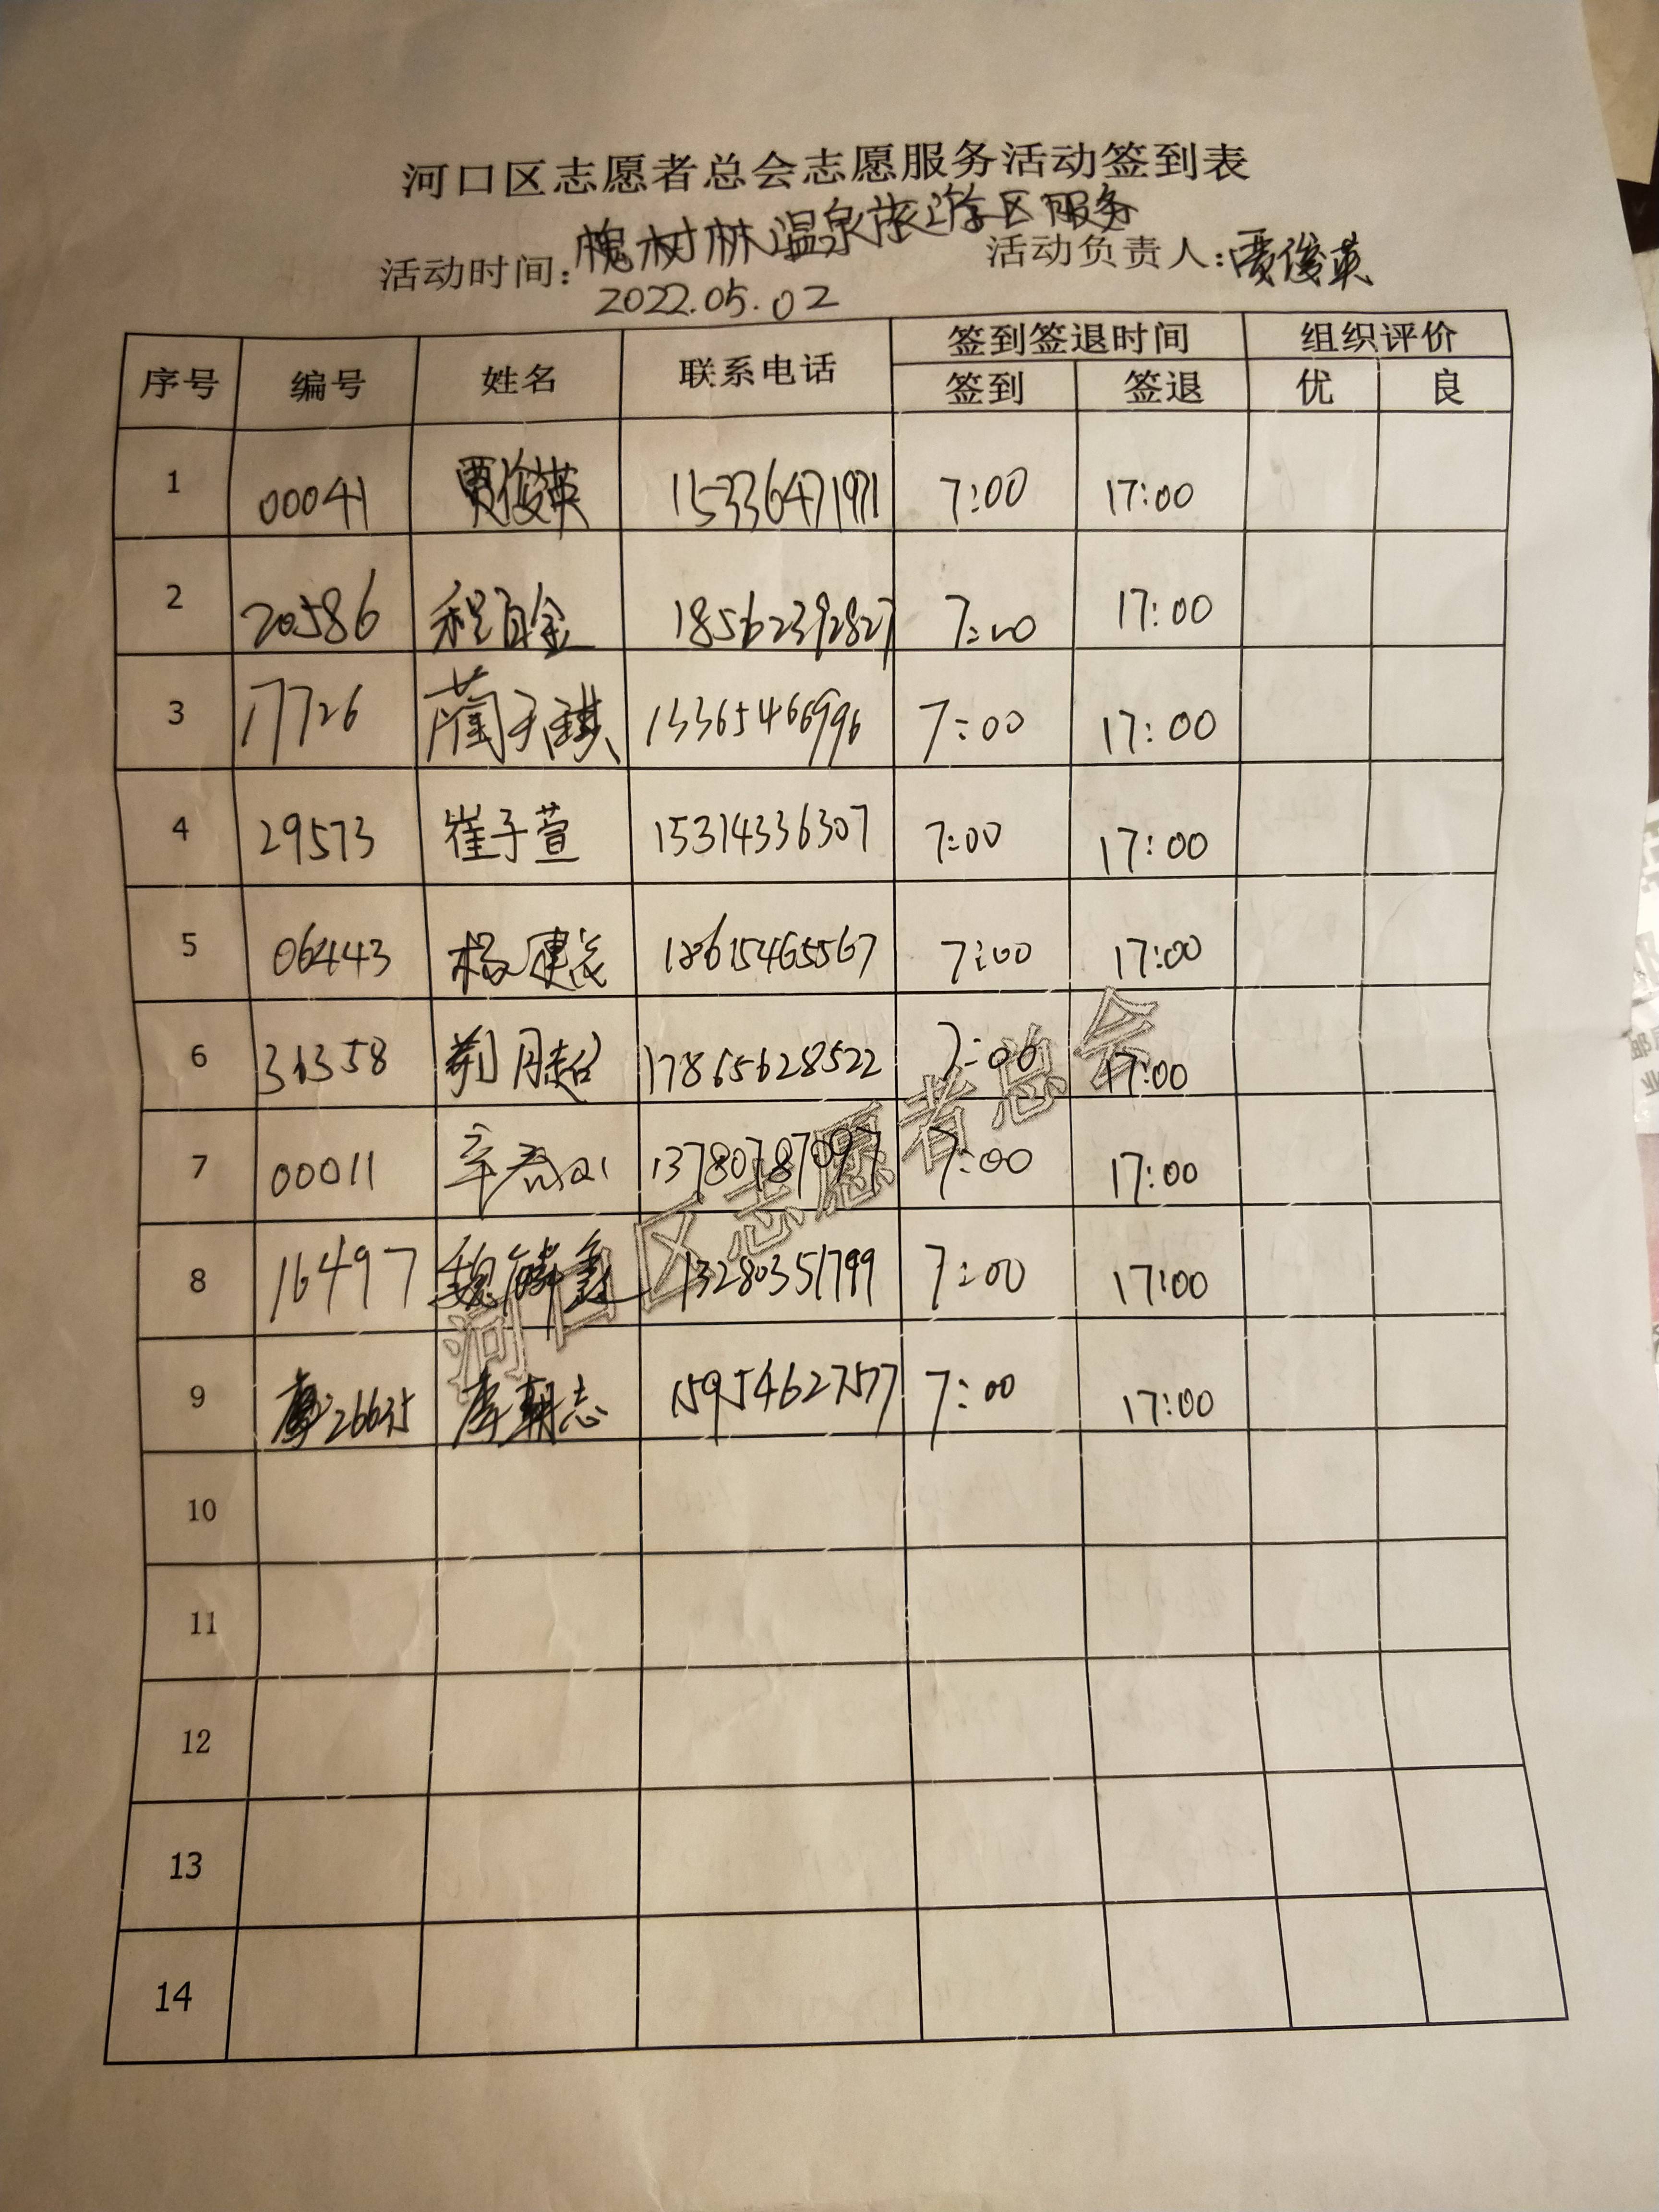 河口区志愿者总会志愿服务活动签到表
槐树林温泉旅游区服务
活动时间： 活动负责人：贾俊英
2022.05.02
序号 编号 姓名 联系电话 签到签退时间 组织评价
签到 签退 优 良
1 00041 贾俊英 15336471971 7:00 17:00
2 20586 程百金 18562392827 7:00 17:00
3 17726 蔺天琪 13365466996 7:00 17:00
4 29573 崔子萱 15314336307 7:00 17:00
5 06443 杨建 18615465567 7:00 17:00
6 荆月超 17865628522 7:00 17:00
7 00011 辛 13780787097 7:00 17:00
8 16497 魏 13280351799 7:00 17:00
9 26635 李朝志 15954627577 7:00 17:00
10
11
12
13
14
河口区志愿者总会